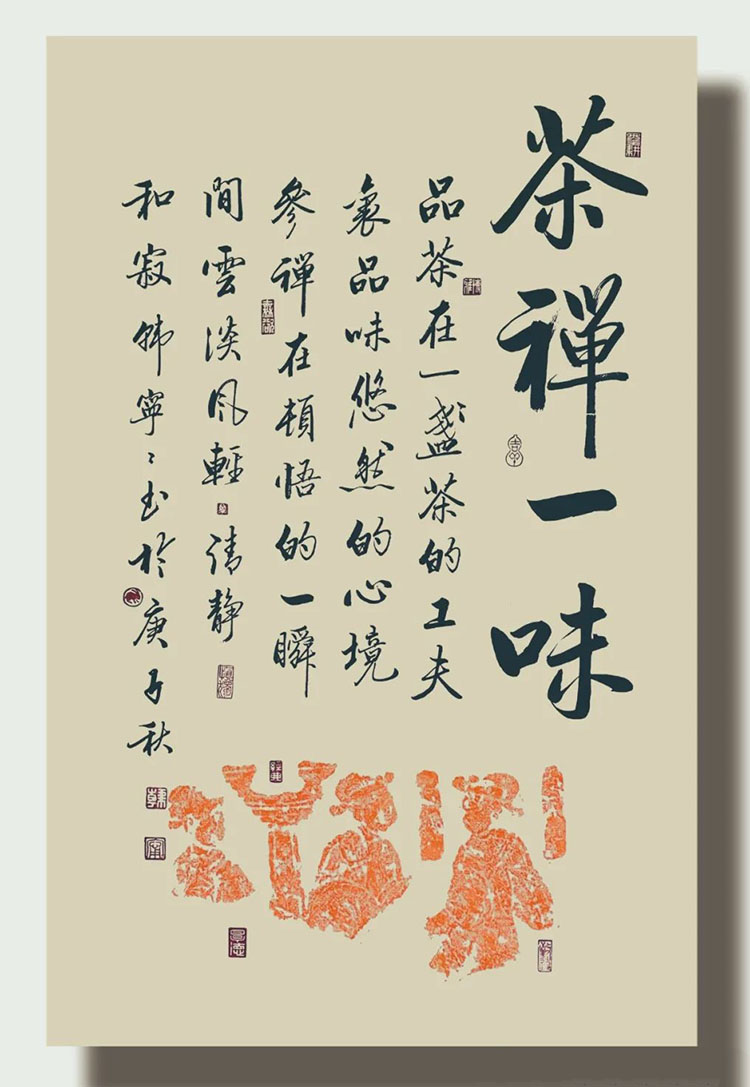 茶禪一味
品茶在一盞茶的工夫
裏品味悠然的心境
參禪在頓悟的一瞬
間雲淡風輕清静
和寂韩寧寧書於庚子秋